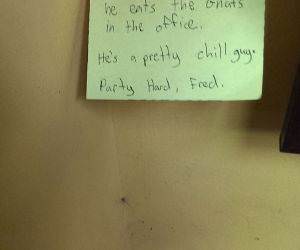 he eats the Gnats
in the office.
He's a pretty chill guy.
Party Hard, Fred.